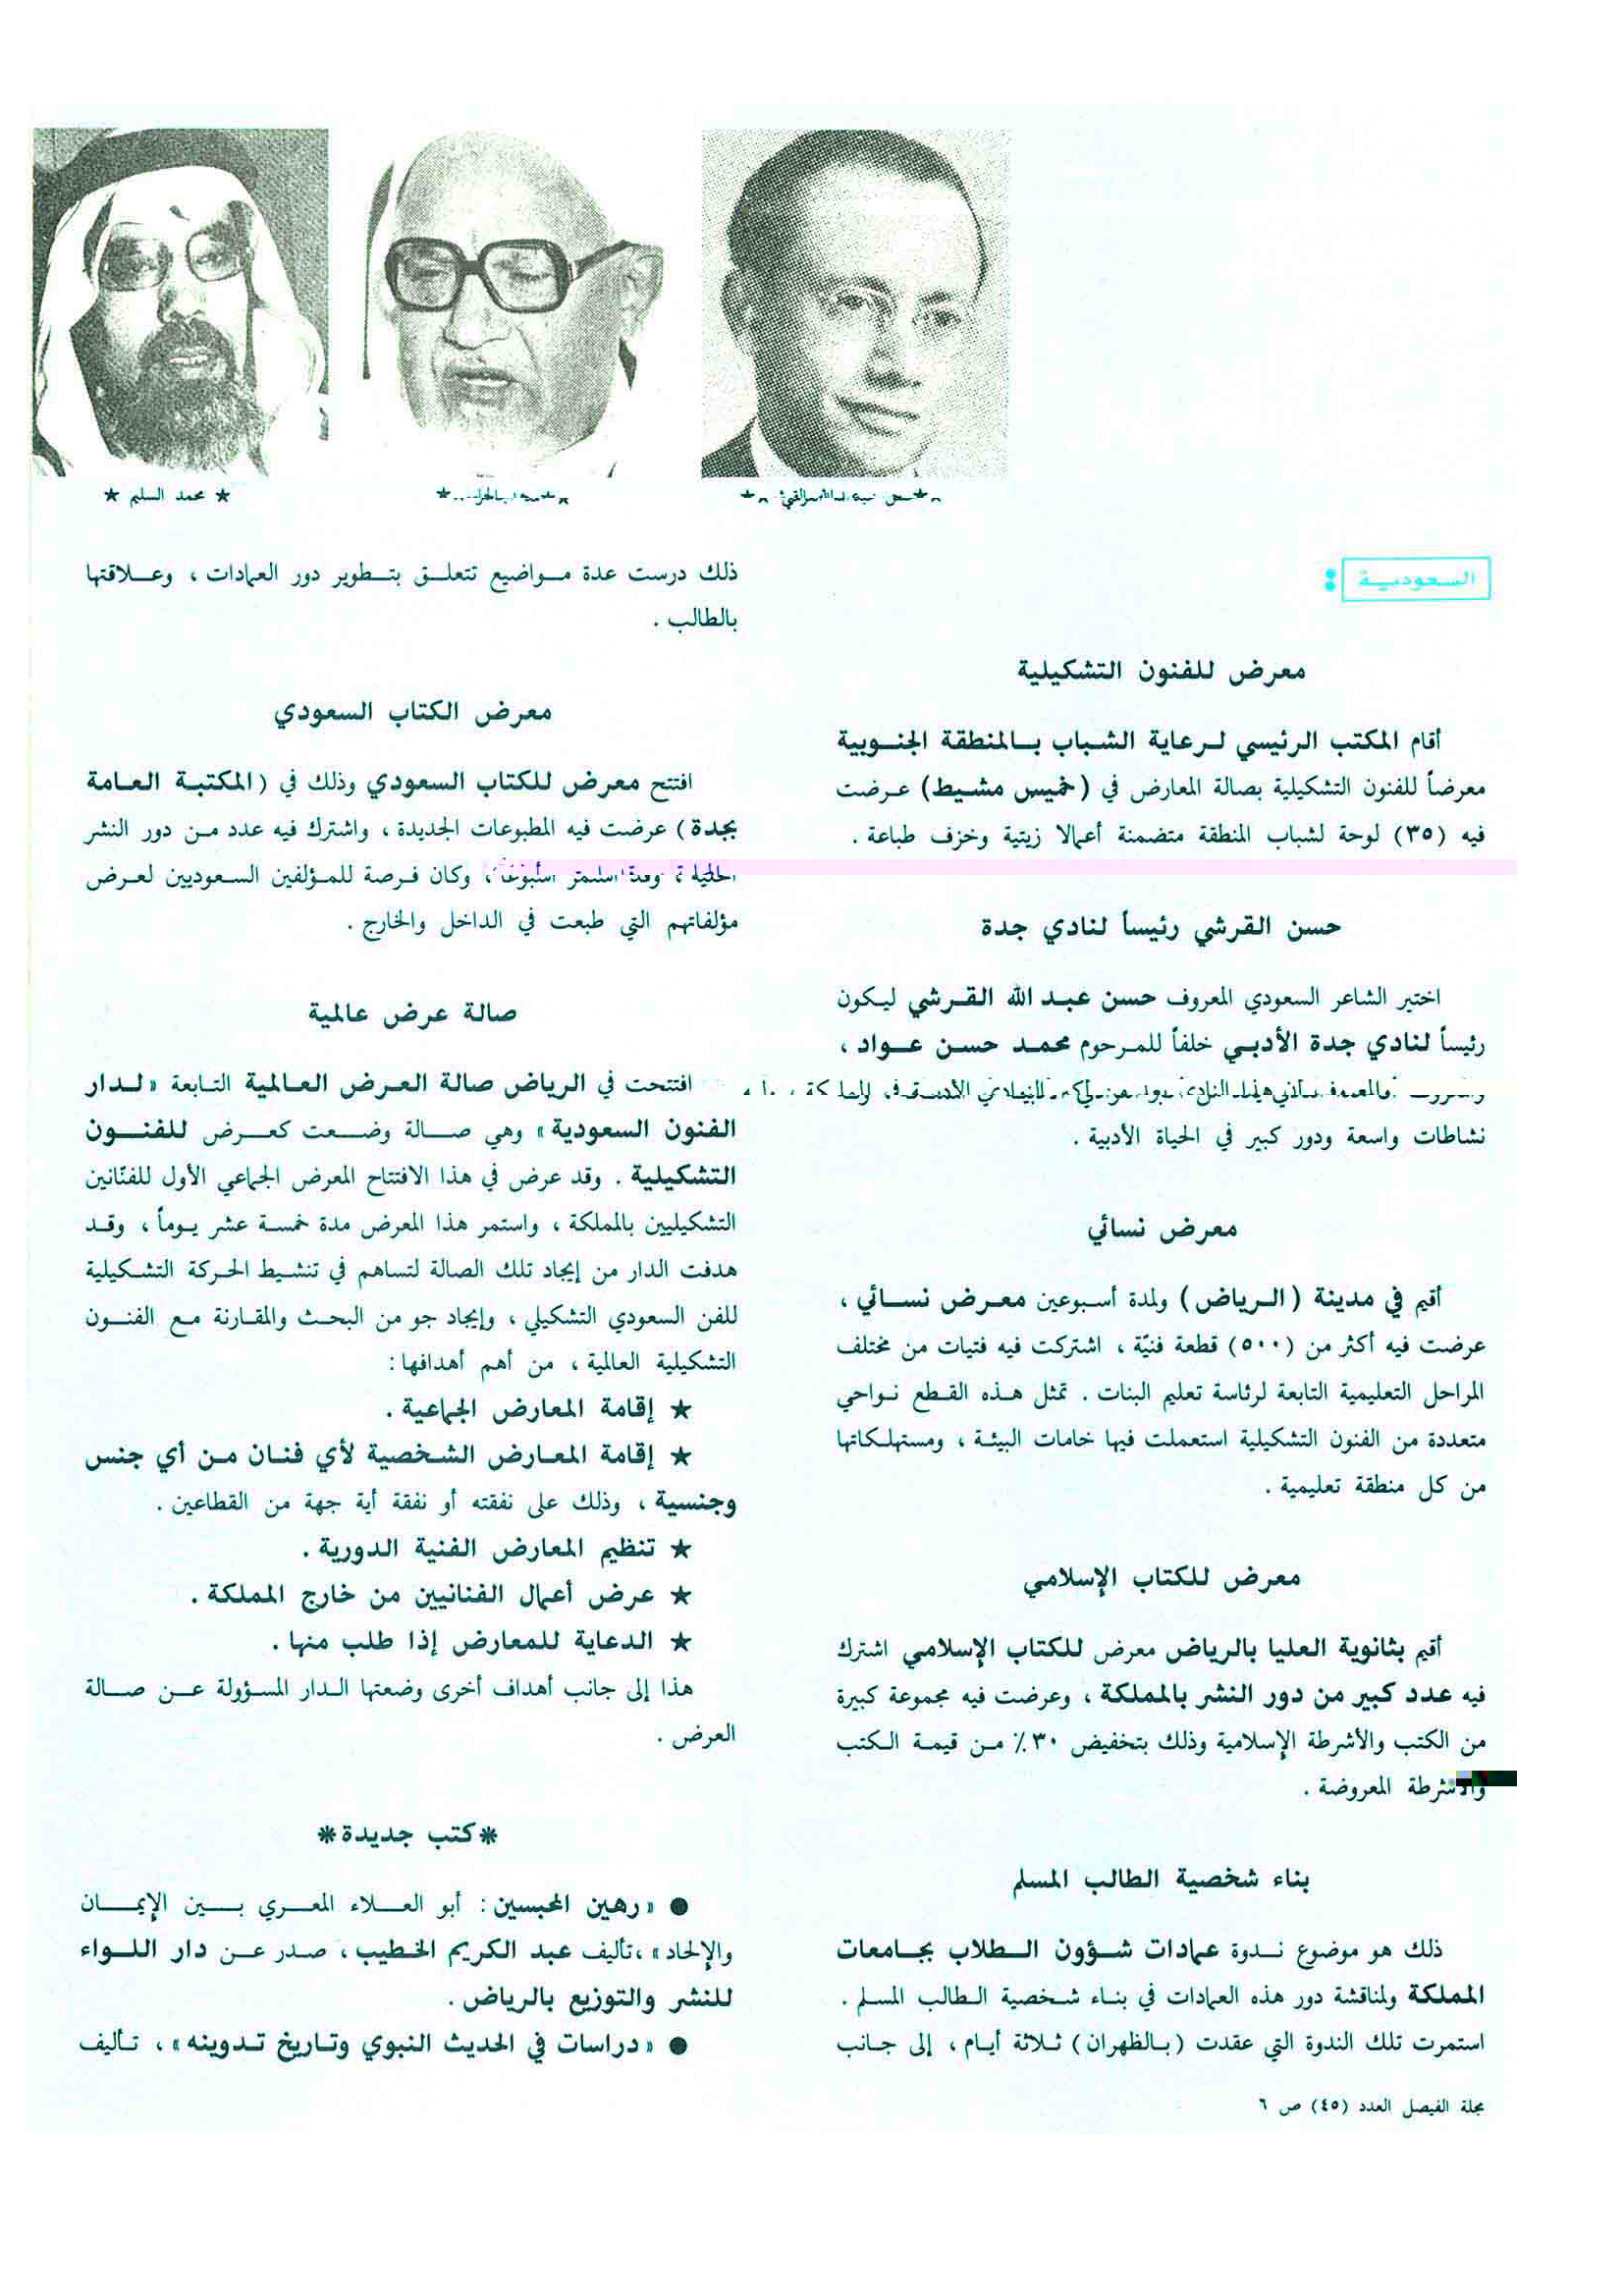 ★ محمد السليم ★
السعودية :
معرض للفنون التشكيلية
أقام المكتب الرئيسي لرعاية الشباب بالمنطقة الجنوبية
معرضاً للفنون التشكيلية بصالة المعارض في (خميس مشيط) عرضت
فيه (٣٥) لوحة لشباب المنطقة متضمنة أعمالا زيتية وخزف طباعة .
حسن القرشي رئيساً لنادي جدة
اختير الشاعر السعودي المعروف حسن عبد الله القرشي ليكون
رئيساً لنادي جدة الأدبي خلفاً للمرحوم محمد حسن عواد ،
نشاطات واسعة ودور كبير في الحياة الأدبية .
معرض نسائي
أقيم في مدينة (الرياض) ولمدة أسبوعين معرض نسائي ،
عرضت فيه أكثر من (٥٠٠) قطعة فنيّة ، اشتركت فيه فتيات من مختلف
المراحل التعليمية التابعة لرئاسة تعليم البنات . تمثل هذه القطع نواحي
متعددة من الفنون التشكيلية استعملت فيها خامات البيئة ، ومستهلكاتها
من كل منطقة تعليمية .
معرض للكتاب الإسلامي
أقيم بثانوية العليا بالرياض معرض للكتاب الإسلامي اشترك
فيه عدد كبير من دور النشر بالمملكة ، وعرضت فيه مجموعة كبيرة
من الكتب والأشرطة الإسلامية وذلك بتخفيض ٣٠٪ من قيمة الكتب
والأشرطة المعروضة .
بناء شخصية الطالب المسلم
ذلك هو موضوع ندوة عمادات شؤون الطلاب بجامعات
المملكة ولمناقشة دور هذه العمادات في بناء شخصية الطالب المسلم .
استمرت تلك الندوة التي عقدت (بالظهران) ثلاثة أيام ، إلى جانب
ذلك درست عدة مواضيع تتعلق بتطوير دور العمادات ، وعلاقتها
بالطالب .
معرض الكتاب السعودي
افتتح معرض للكتاب السعودي وذلك في (المكتبة العامة
بجدة) عرضت فيه المطبوعات الجديدة ، واشترك فيه عدد من دور النشر
وكان فرصة للمؤلفين السعوديين لعرض
مؤلفاتهم التي طبعت في الداخل والخارج .
صالة عرض عالمية
افتتحت في الرياض صالة العرض العالمية التابعة «لدار
الفنون السعودية» وهي صالة وضعت كعرض للفنون
التشكيلية . وقد عرض في هذا الافتتاح المعرض الجماعي الأول للفنّانين
التشكيليين بالمملكة ، واستمر هذا المعرض مدة خمسة عشر يوماً ، وقد
هدفت الدار من إيجاد تلك الصالة لتساهم في تنشيط الحركة التشكيلية
للفن السعودي التشكيلي ، وإيجاد جو من البحث والمقارنة مع الفنون
التشكيلية العالمية ، من أهم أهدافها :
★ إقامة المعارض الجماعية .
★ إقامة المعارض الشخصية لأي فنان من أي جنس
وجنسية ، وذلك على نفقته أو نفقة أية جهة من القطاعين .
★ تنظيم المعارض الفنية الدورية .
★ عرض أعمال الفنانيين من خارج المملكة .
★ الدعاية للمعارض إذا طلب منها .
هذا إلى جانب أهداف أخرى وضعتها الدار المسؤولة عن صالة
العرض .
*كتب جديدة*
● «رهين المحبسين : أبو العلاء المعري بين الإيمان
والإلحاد» ،تأليف عبد الكريم الخطيب ، صدر عن دار اللواء
للنشر والتوزيع بالرياض .
● «دراسات في الحديث النبوي وتاريخ تدوينه» ، تأليف
مجلة الفيصل العدد (٤٥) ص ٦